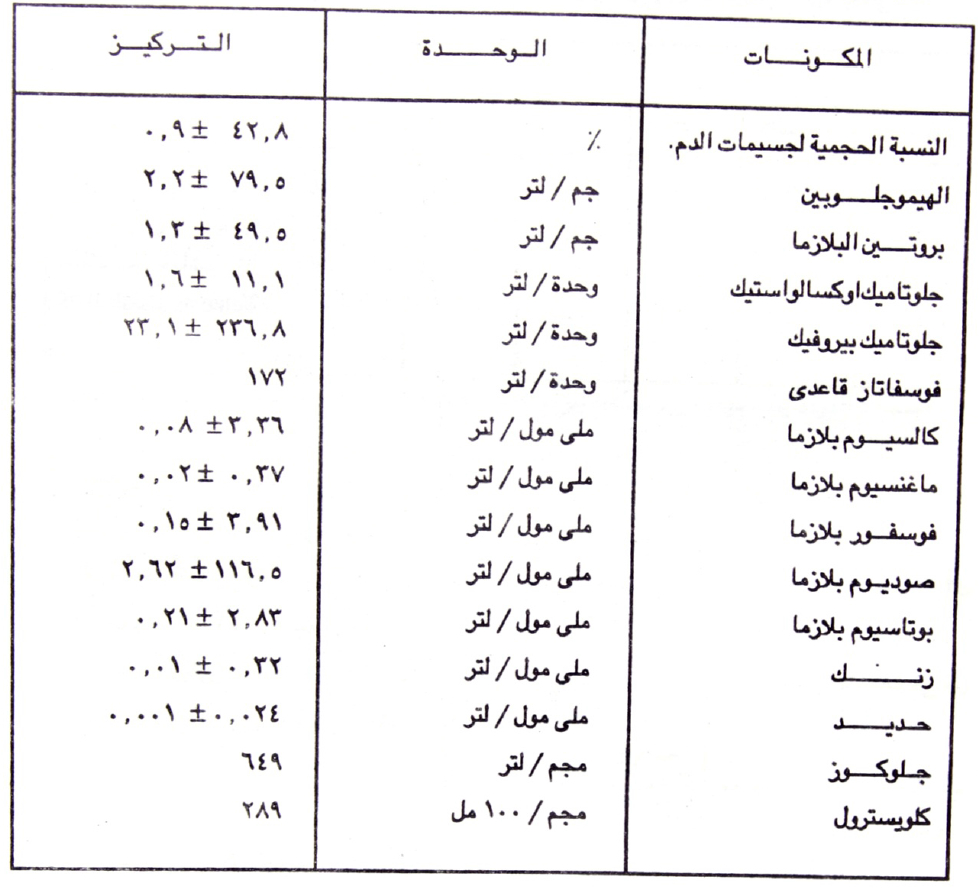 المكونات الوحدة التركيز
النسبة الحجمية لجسيمات الدم. ٪ ٤٢,٨ ± ٠,٩
الهيموجلوبين جم / لتر ٧٩,٥ ± ٢,٢
بروتين البلازما جم / لتر ٤٩,٥ ± ١,٣
جلوتاميك اوكسالواستيك وحدة / لتر ١١,١ ± ١,٦
جلوتاميك بيروفيك وحدة / لتر ٢٣٦,٨ ± ٢٣,١
فوسفاتاز قاعدى وحدة / لتر ١٧٢
كالسيوم بلازما ملى مول / لتر ٣,٣٦ ± ٠,٠٨
ماغنسيوم بلازما ملى مول / لتر ٠,٣٧ ± ٠,٠٢
فوسفور بلازما ملى مول / لتر ٣,٩١ ± ٠,١٥
صوديوم بلازما ملى مول / لتر ١١٦,٥ ± ٢,٦٢
بوتاسيوم بلازما ملى مول / لتر ٢,٨٣ ± ٠,٢١
زنك ملى مول / لتر ٠,٣٢ ± ٠,٠١
حديد ملى مول / لتر ٠,٠٢٤ ± ٠,٠٠١
جلوكوز مجم / لتر ٦٤٩
كلويسترول مجم / ١٠٠ مل ٢٨٩